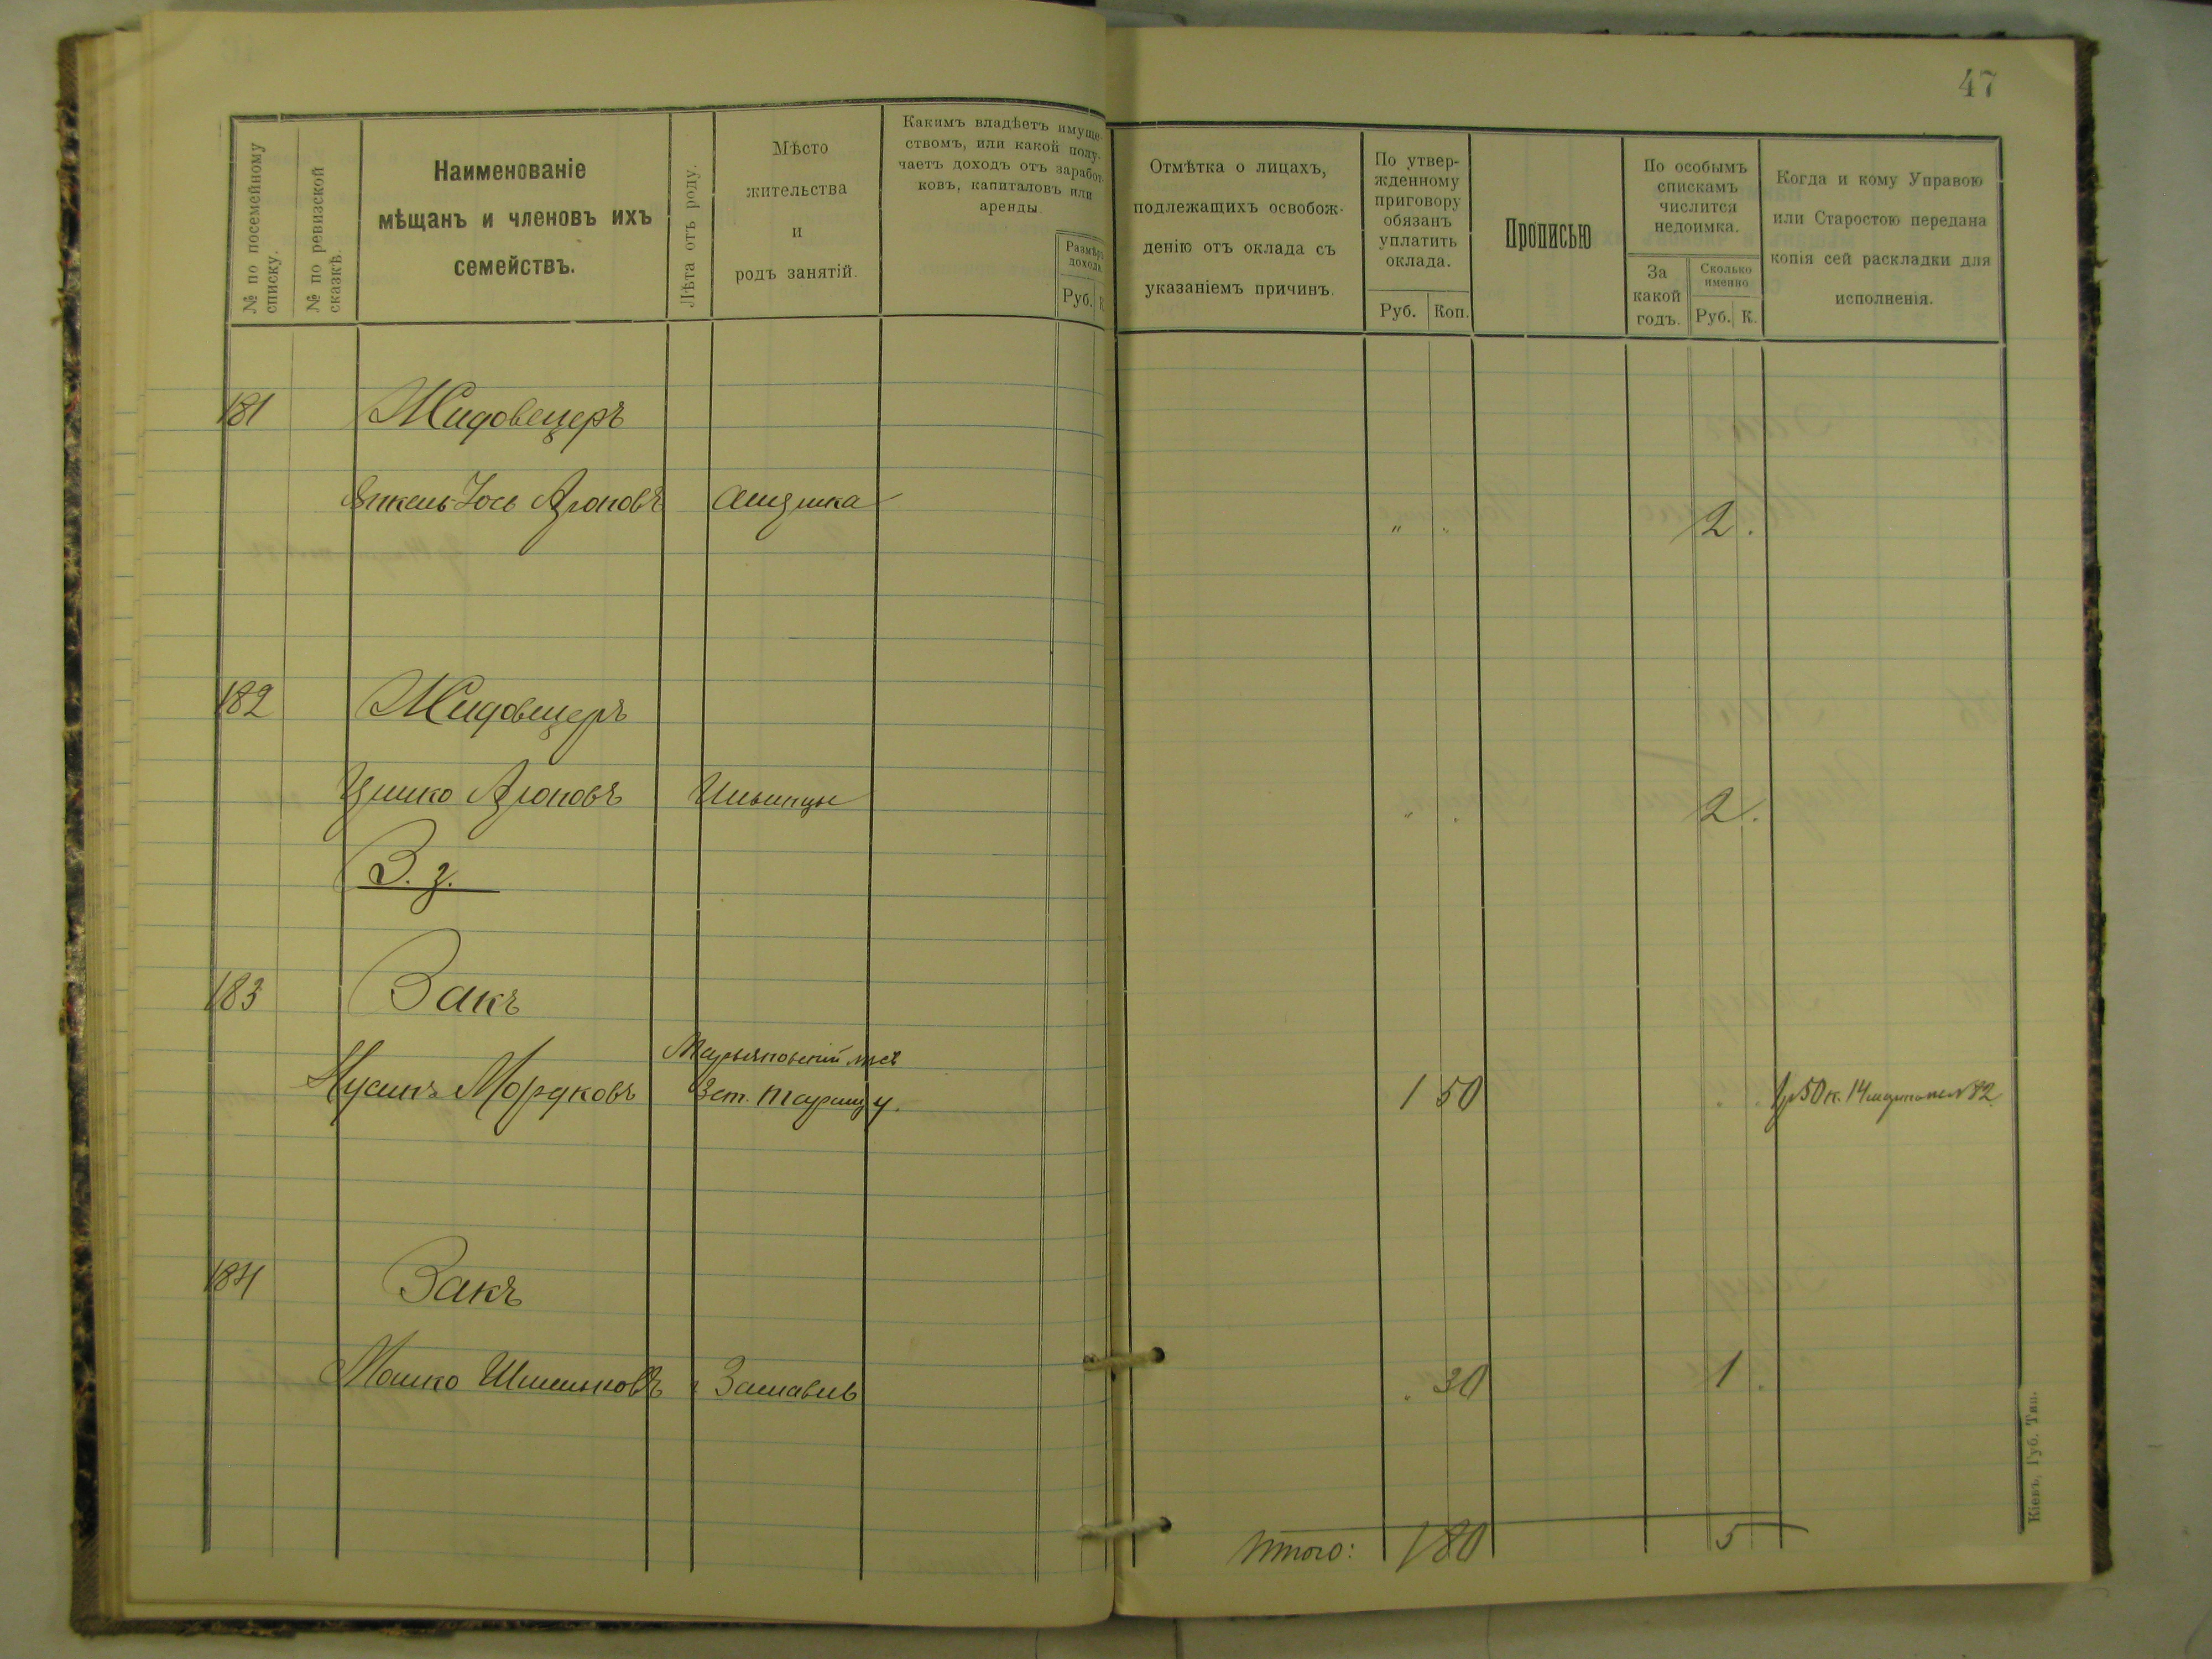 47
№ по посемейному
списку.
№ по ревизской
сказкѣ.
Наименованіе
мѣщанъ и членовъ ихъ
семействъ.
Лѣта отъ роду.
Мѣсто
жительства
и
родъ занятій.
Какимъ владѣетъ имуще-
ствомъ, или какой полу-
чаетъ доходъ отъ заработ-
ковъ, капиталовъ или
аренды.
Размѣръ
дохода.
Руб. К
Отмѣтка о лицахъ,
подлежащихъ освобож-
денію отъ оклада съ
указаніемъ причинъ.
По утвер-
жденному
приговору
обязанъ
уплатить
оклада.
Руб. Коп.
Прописью
По особымъ
спискамъ
числится
недоимка.
За
какой
годъ.
Сколько
именно
Руб. К.
Когда и кому Управою
или Старостою передана
копія сей раскладки для
исполненія.
181 Жидовецеръ
Янкель-Іось Ароновъ " " 2 .
182 Жидовецеръ
Ицико Ароновъ Ильинцы " . 2 .
З. з.
183 Закъ
Нусинъ Мордковъ 1 50 . . 1 р 50 к. 14 № 82
184 Закъ
Мошко Шмульковъ Заславль . 30 1 .
Итого: 1 80 5
Кіевъ, Губ. Тип.